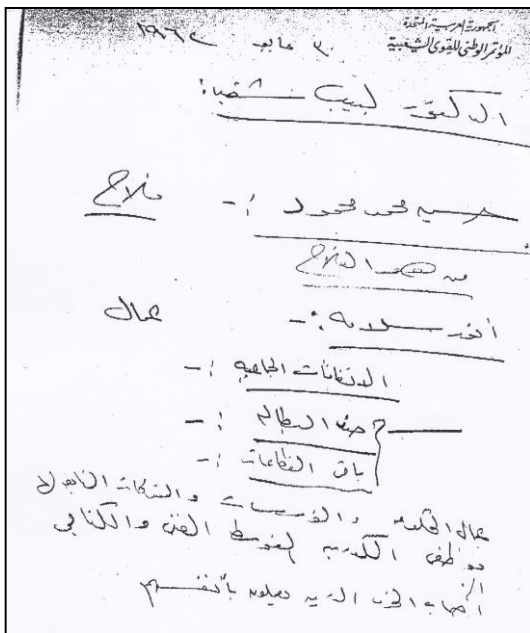 الجمهورية العربية المتحدة
المؤتمر الوطني للقوى الشعبية
٣٠ مايو ١٩٦٢
الدكتور لبيب شقير:
حسن محمد محمود :- فلاح
من هو الفلاح
أنور سلامه :- عمال
الاتفاقات الجماعية :-
حق البطالة :-
باقي القطاعات :-
عمال الحكومة والمؤسسات والشركات التابعة لها
موظفي الكادر المتوسط الفني والكتابي
أصحاب الحرف الذين يعملون بأنفسهم